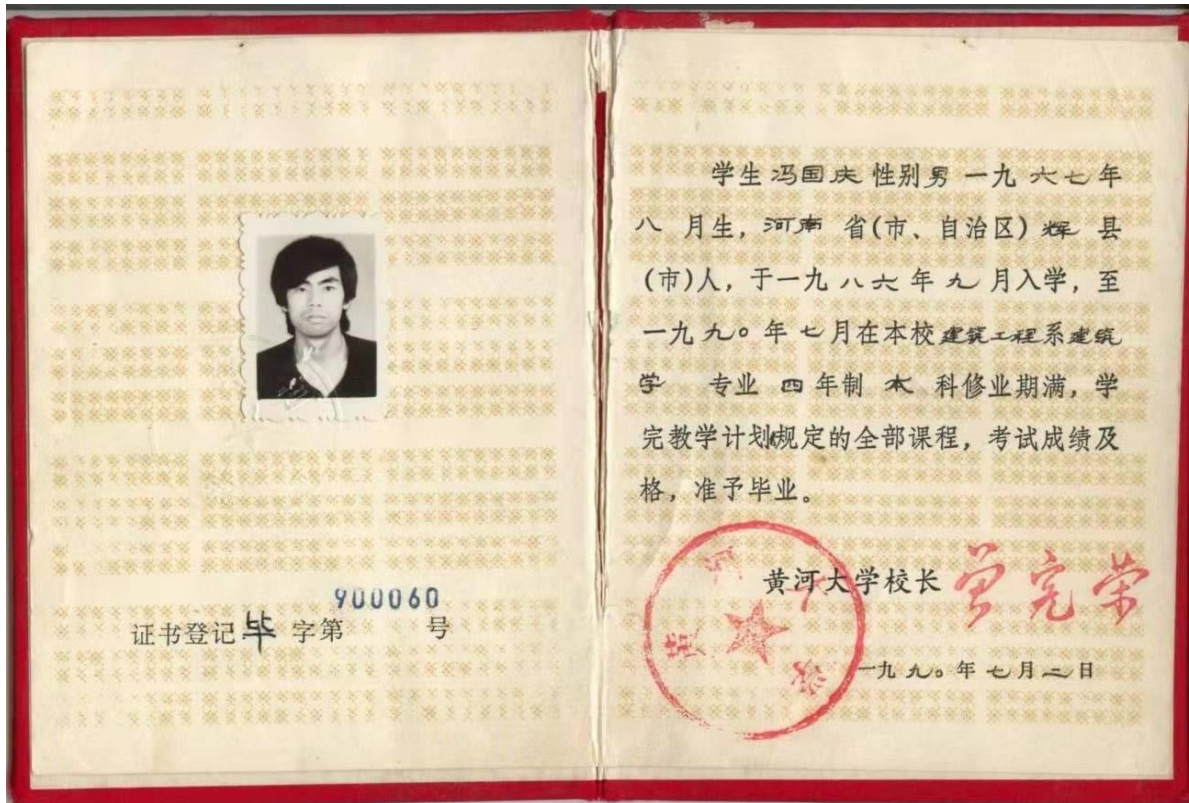 900060
证书登记 毕 字第 号
学生 冯国庆 性别 男 一九 六七 年
八 月生，河南 省(市、自治区) 辉 县
(市)人，于一九 八六 年 九 月入学，至
一九 九〇 年 七 月在本校 建筑工程 系 建筑
学 专业 四 年制 本 科修业期满，学
完教学计划规定的全部课程，考试成绩及
格，准予毕业。
黄河大学校长 曾宪荣
黄河大学
一九 九〇 年 七 月 二 日